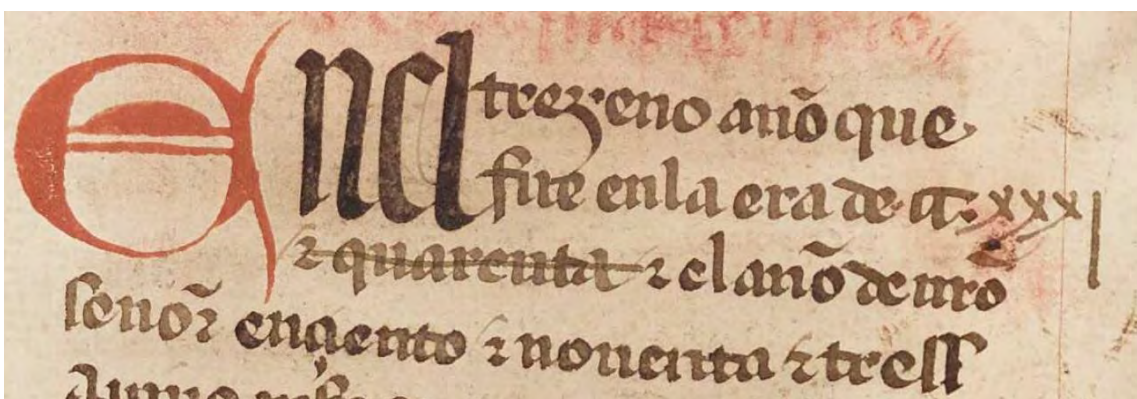 Enel trezeno año que
fue enla era de xxxj
⁊ quarenta ⁊ el año de nr̃o
señor en çiento ⁊ nouenta ⁊ tress